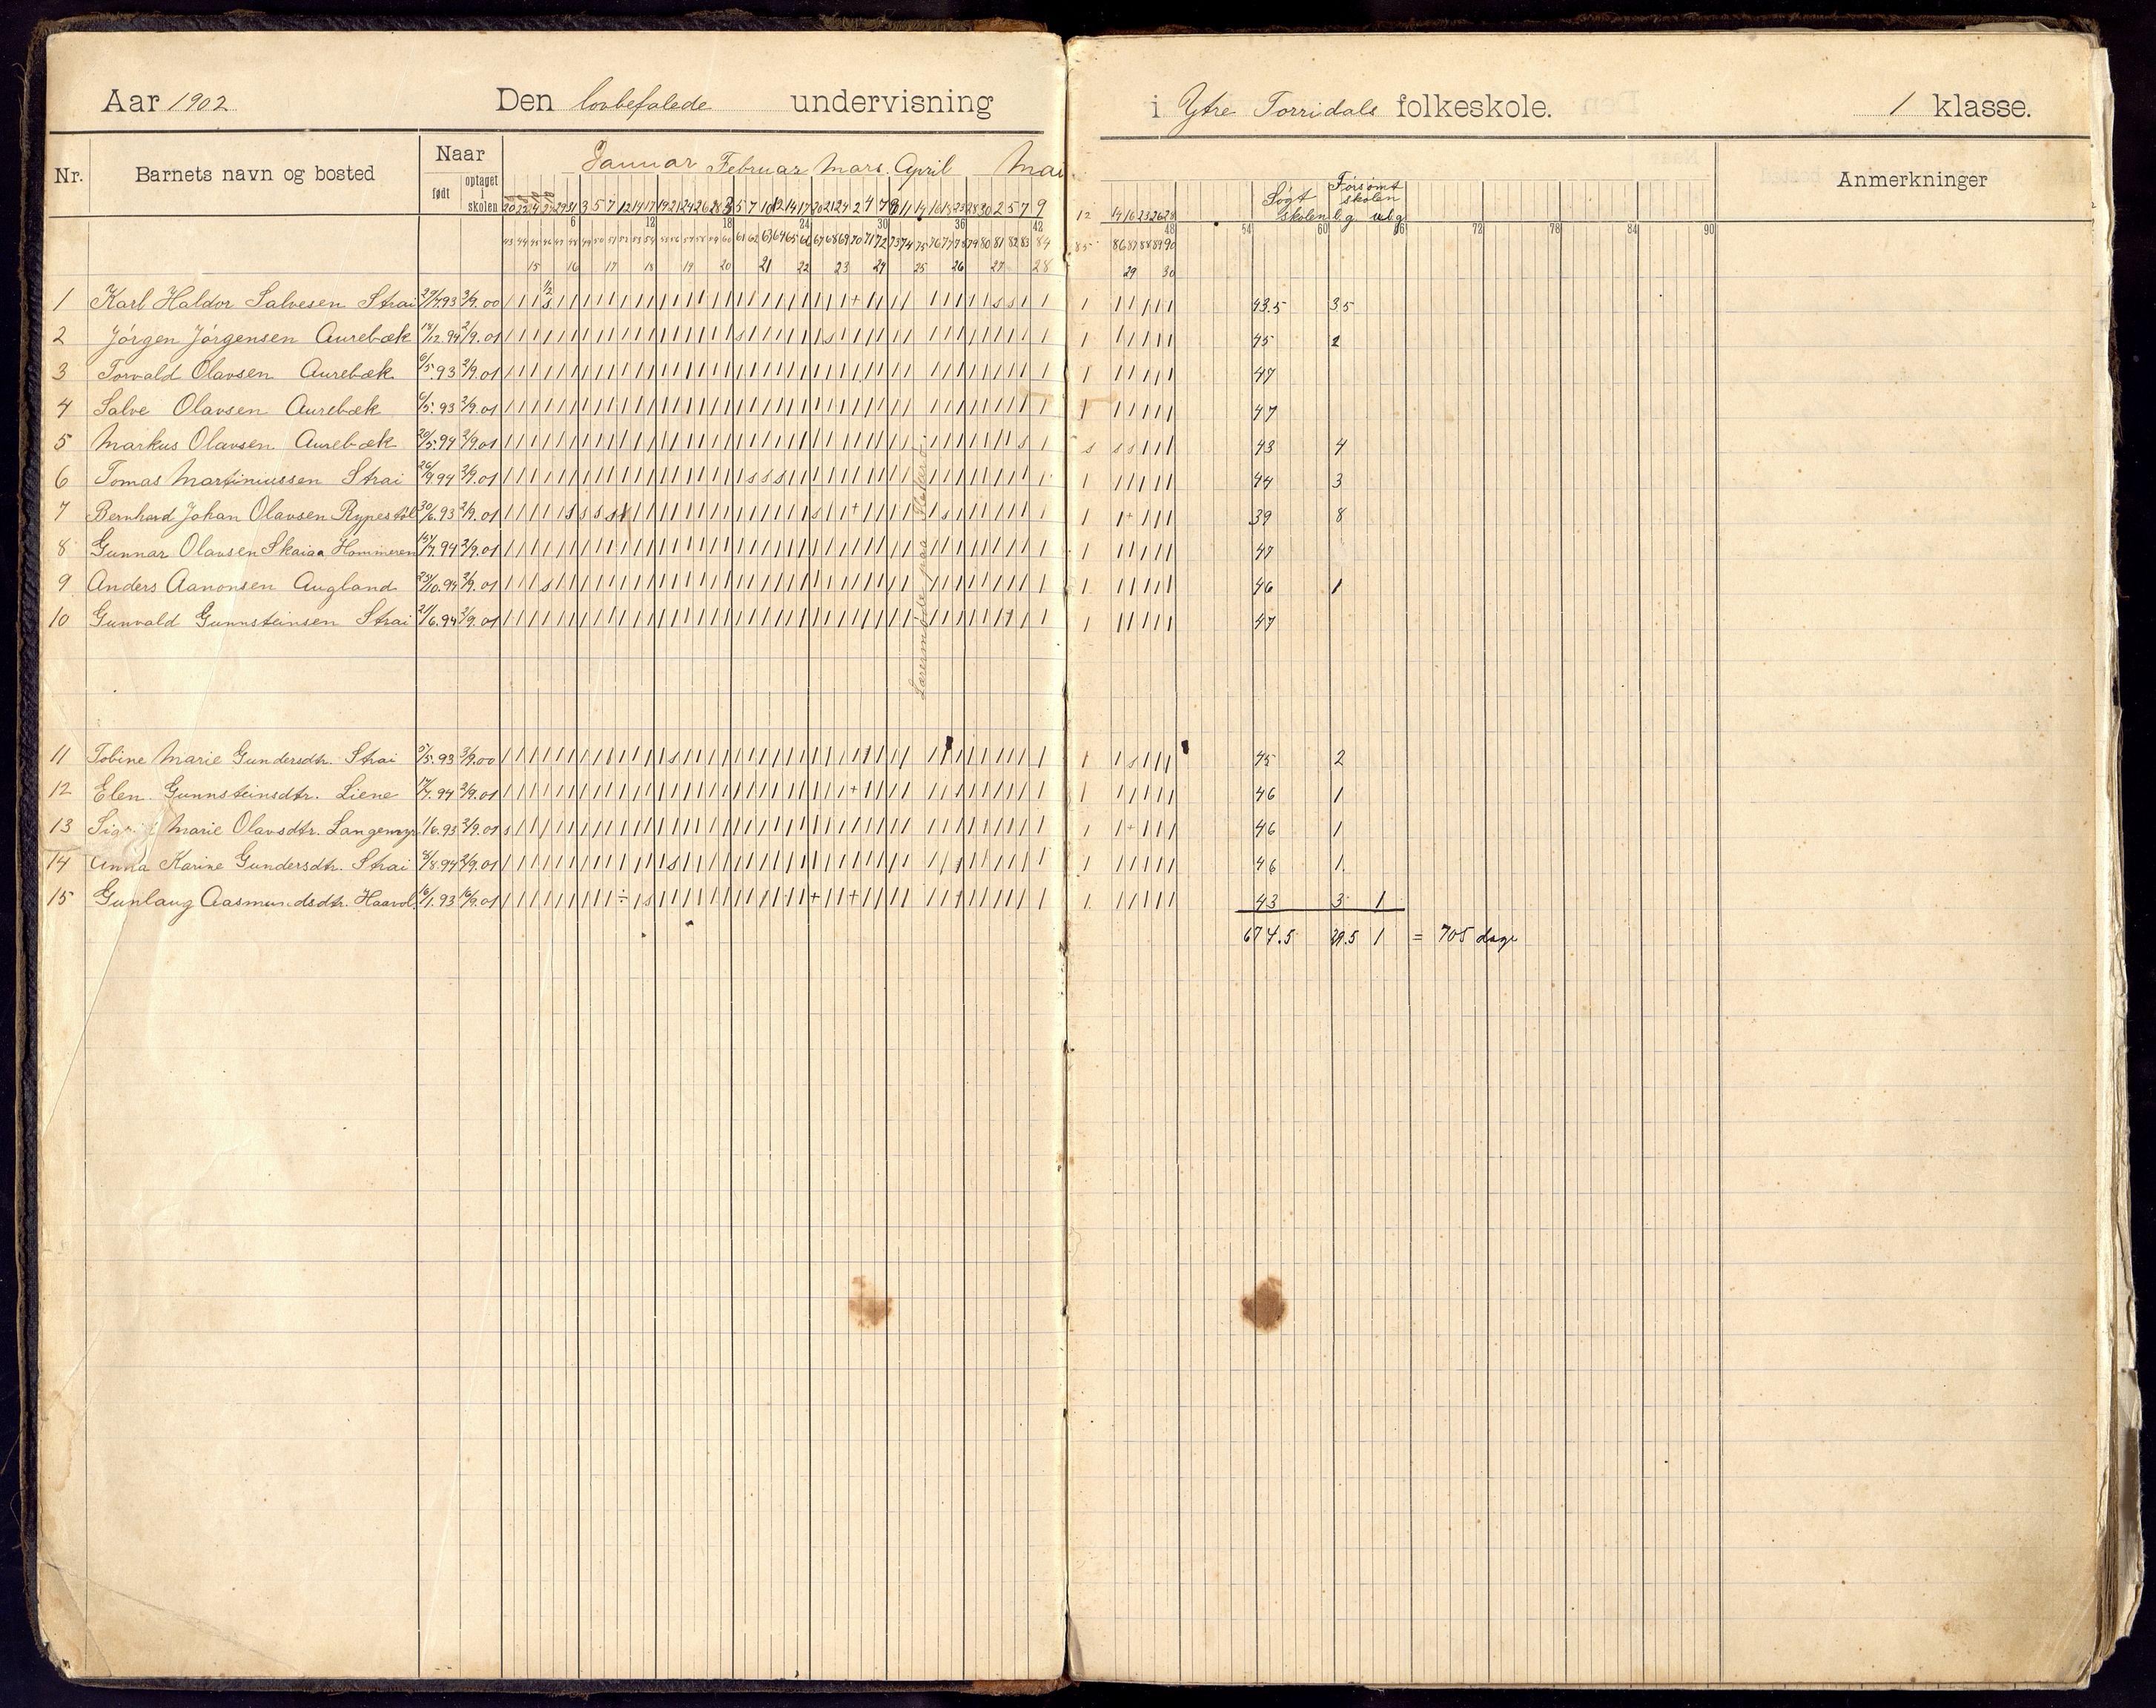 Aar 1902 Den lovbefalede undervisning i Ytre Torridals folkeskole. 1 klasse.
Nr. Barnets navn og bosted Naar født optaget i skolen Januar Februar Mars. April Mai Søgt skolen Forsømt skolen l.g. ul.g. Anmerkninger
6 12 18 24 30 36 42 48 54 60 66 72 78 84 90
15 16 17 18 19 20 21 22 23 24 25 26 27 28 29 30
1 Karl Haldor Salvesen Strai 29/7.93 3/9.00 43.5 3.5
2 Jørgen Jørgensen Aurebæk 18/12.94 2/9.01 45 2
3 Torvald Olavsen Aurebæk 6/5.93 2/9.01 47
4 Salve Olavsen Aurebæk 6/5.93 2/9.01 47
5 Markus Olavsen Aurebæk 20/5.94 2/9.01 43 4
6 Tomas Martiniussen Strai 26/9.94 2/9.01 44 3
7 Bernhard Johan Olavsen Rypestøl 30/6.93 2/9.01 39 8
8 Gunnar Olavsen Skaiaa Hommeren 15/7.94 2/9.01 47
9 Anders Aanonsen Augland 23/10.94 2/9.01 46 1
10 Gunvald Gunnsteinsen Strai 21/6.94 2/9.01 47
Lærermøde paa Flekkerø.
11 Tobine Marie Gundersdtr. Strai 5/5.93 3/9.00 45 2
12 Elen Gunnsteinsdtr. Liene 17/7.94 2/9.01 46 1
13 Marie Olavsdtr. Langemyr 1/6.93 2/9.01 46 1
14 Anna Karine Gundersdtr. Strai 8/8.94 2/9.01 46 1.
15 Gunlaug Aasmundsdtr. Haavol. 16/1.93 16/9.01 43 3 1
674.5 29.5 1 = 705 dage